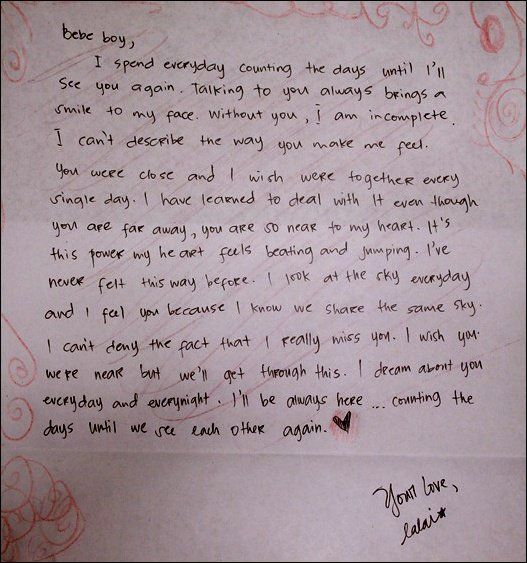 bebe boy,
I spend everyday counting the days until I'll
see you again. Talking to you always brings a
smile to my face. Without you, I am incomplete.
I can't describe the way you make me feel.
You were close and I wish were together every
single day. I have learned to deal with It even though
you are far away, you are so near to my heart. It's
this power my heart feels beating and jumping. I've
never felt this way before. I look at the sky everyday
and I feel you because I know we share the same sky.
I can't deny the fact that I really miss you. I wish you
were near but we'll get through this. I dream about you
everyday and everynight. I'll be always here ... counting the
days until we see each other again. ♥
Your love,
lalai★